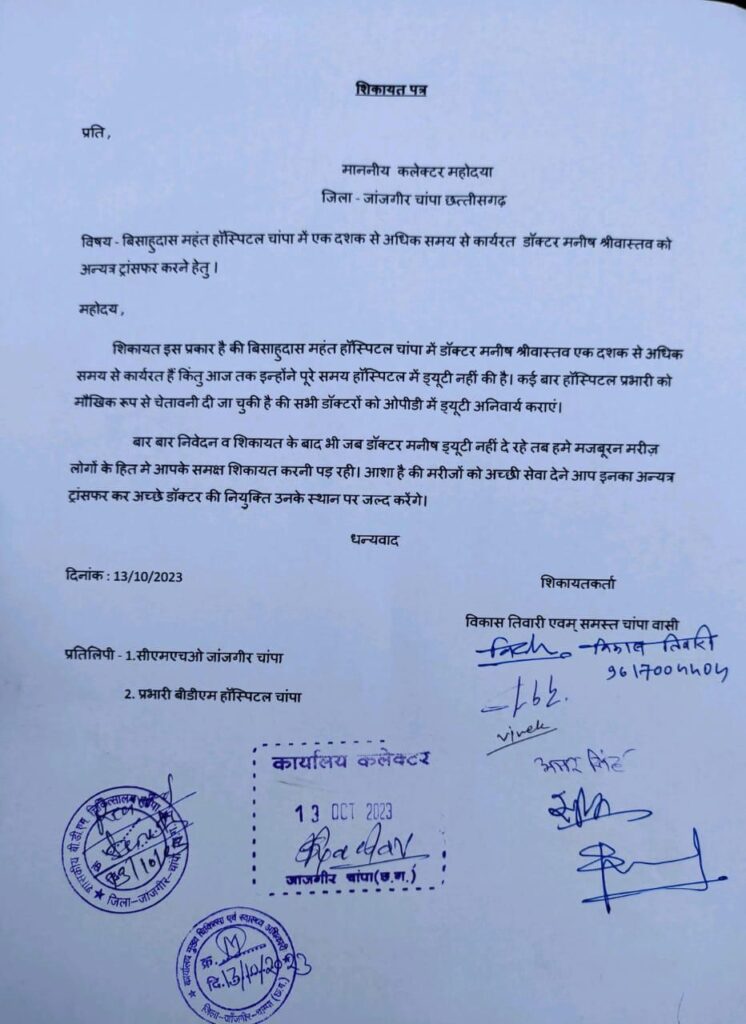 शिकायत पत्र
प्रति ,
माननीय कलेक्टर महोदया
जिला - जांजगीर चांपा छत्तीसगढ़
विषय - बिसाहुदास महंत हॉस्पिटल चांपा में एक दशक से अधिक समय से कार्यरत डॉक्टर मनीष श्रीवास्तव को
अन्यत्र ट्रांसफर करने हेतु ।
महोदय ,
शिकायत इस प्रकार है की बिसाहुदास महंत हॉस्पिटल चांपा में डॉक्टर मनीष श्रीवास्तव एक दशक से अधिक
समय से कार्यरत हैं किंतु आज तक इन्होने पूरे समय हॉस्पिटल में ड्यूटी नहीं की है। कई बार हॉस्पिटल प्रभारी को
मौखिक रूप से चेतावनी दी जा चुकी है की सभी डॉक्टरों को ओपीडी में ड्यूटी अनिवार्य कराएं।
बार बार निवेदन व शिकायत के बाद भी जब डॉक्टर मनीष ड्यूटी नहीं दे रहे तब हमे मजबूरन मरीज़
लोगों के हित मे आपके समक्ष शिकायत करनी पड़ रही। आशा है की मरीजों को अच्छी सेवा देने आप इनका अन्यत्र
ट्रांसफर कर अच्छे डॉक्टर की नियुक्ति उनके स्थान पर जल्द करेंगे।
धन्यवाद
दिनांक : 13/10/2023
शिकायतकर्ता
विकास तिवारी एवम् समस्त चांपा वासी
विकास तिवारी
9617004404
प्रतिलिपी - 1.सीएमएचओ जांजगीर चांपा
2. प्रभारी बीडीएम हॉस्पिटल चांपा
vivek
कार्यालय कलेक्टर
13 OCT 2023
जाजगीर चांपा(छ.ग.)
शासकीय बी.डी.एम. चिकित्सालय चांपा
जिला-जांजगीर-चांपा
कार्यालय मुख्य चिकित्सा एवं स्वास्थ्य अधिकारी
क्र.
दि.13/10/2023
जिला-जांजगीर-चाम्पा (छ.ग.)